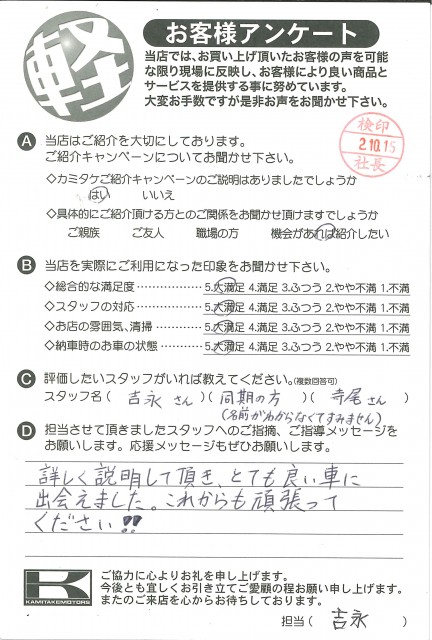 軽
お客様アンケート
当店では、お買い上げ頂いたお客様の声を可能
な限り現場に反映し、お客様により良い商品と
サービスを提供する事に努めています。
大変お手数ですが是非お声をお聞かせ下さい。
検印
2.10.15
社長
A 当店はご紹介を大切にしております。
ご紹介キャンペーンについてお聞かせ下さい。
◇カミタケご紹介キャンペーンのご説明はありましたでしょうか
はい いいえ
◇具体的にご紹介頂ける方とのご関係をお聞かせ頂けますでしょうか
ご親族 ご友人 職場の方 機会があれば紹介したい
B 当店を実際にご利用になった印象をお聞かせ下さい。
◇総合的な満足度 …………… 5.大満足 4.満足 3.ふつう 2.やや不満 1.不満
◇スタッフの対応 …………… 5.大満足 4.満足 3.ふつう 2.やや不満 1.不満
◇お店の雰囲気、清掃 ……… 5.大満足 4.満足 3.ふつう 2.やや不満 1.不満
◇納車時のお車の状態 ……… 5.大満足 4.満足 3.ふつう 2.やや不満 1.不満
C 評価したいスタッフがいれば教えてください。(複数回答可)
スタッフ名( 吉永 さん )( 同期の方 )( 寺尾さん )
(名前がわからなくてすみません)
D 担当させて頂きましたスタッフへのご指摘、ご指導メッセージを
お願いします。応援メッセージもぜひお願いします。
詳しく説明して頂き、とても良い車に
出会えました。これからも頑張って
ください!!
K
KAMITAKEMOTORS
ご協力に心よりお礼を申し上げます。
今後とも宜しくお引き立てご愛顧の程お願い申し上げます。
またのご来店を心からお待ちしております。
担当( 吉永 )